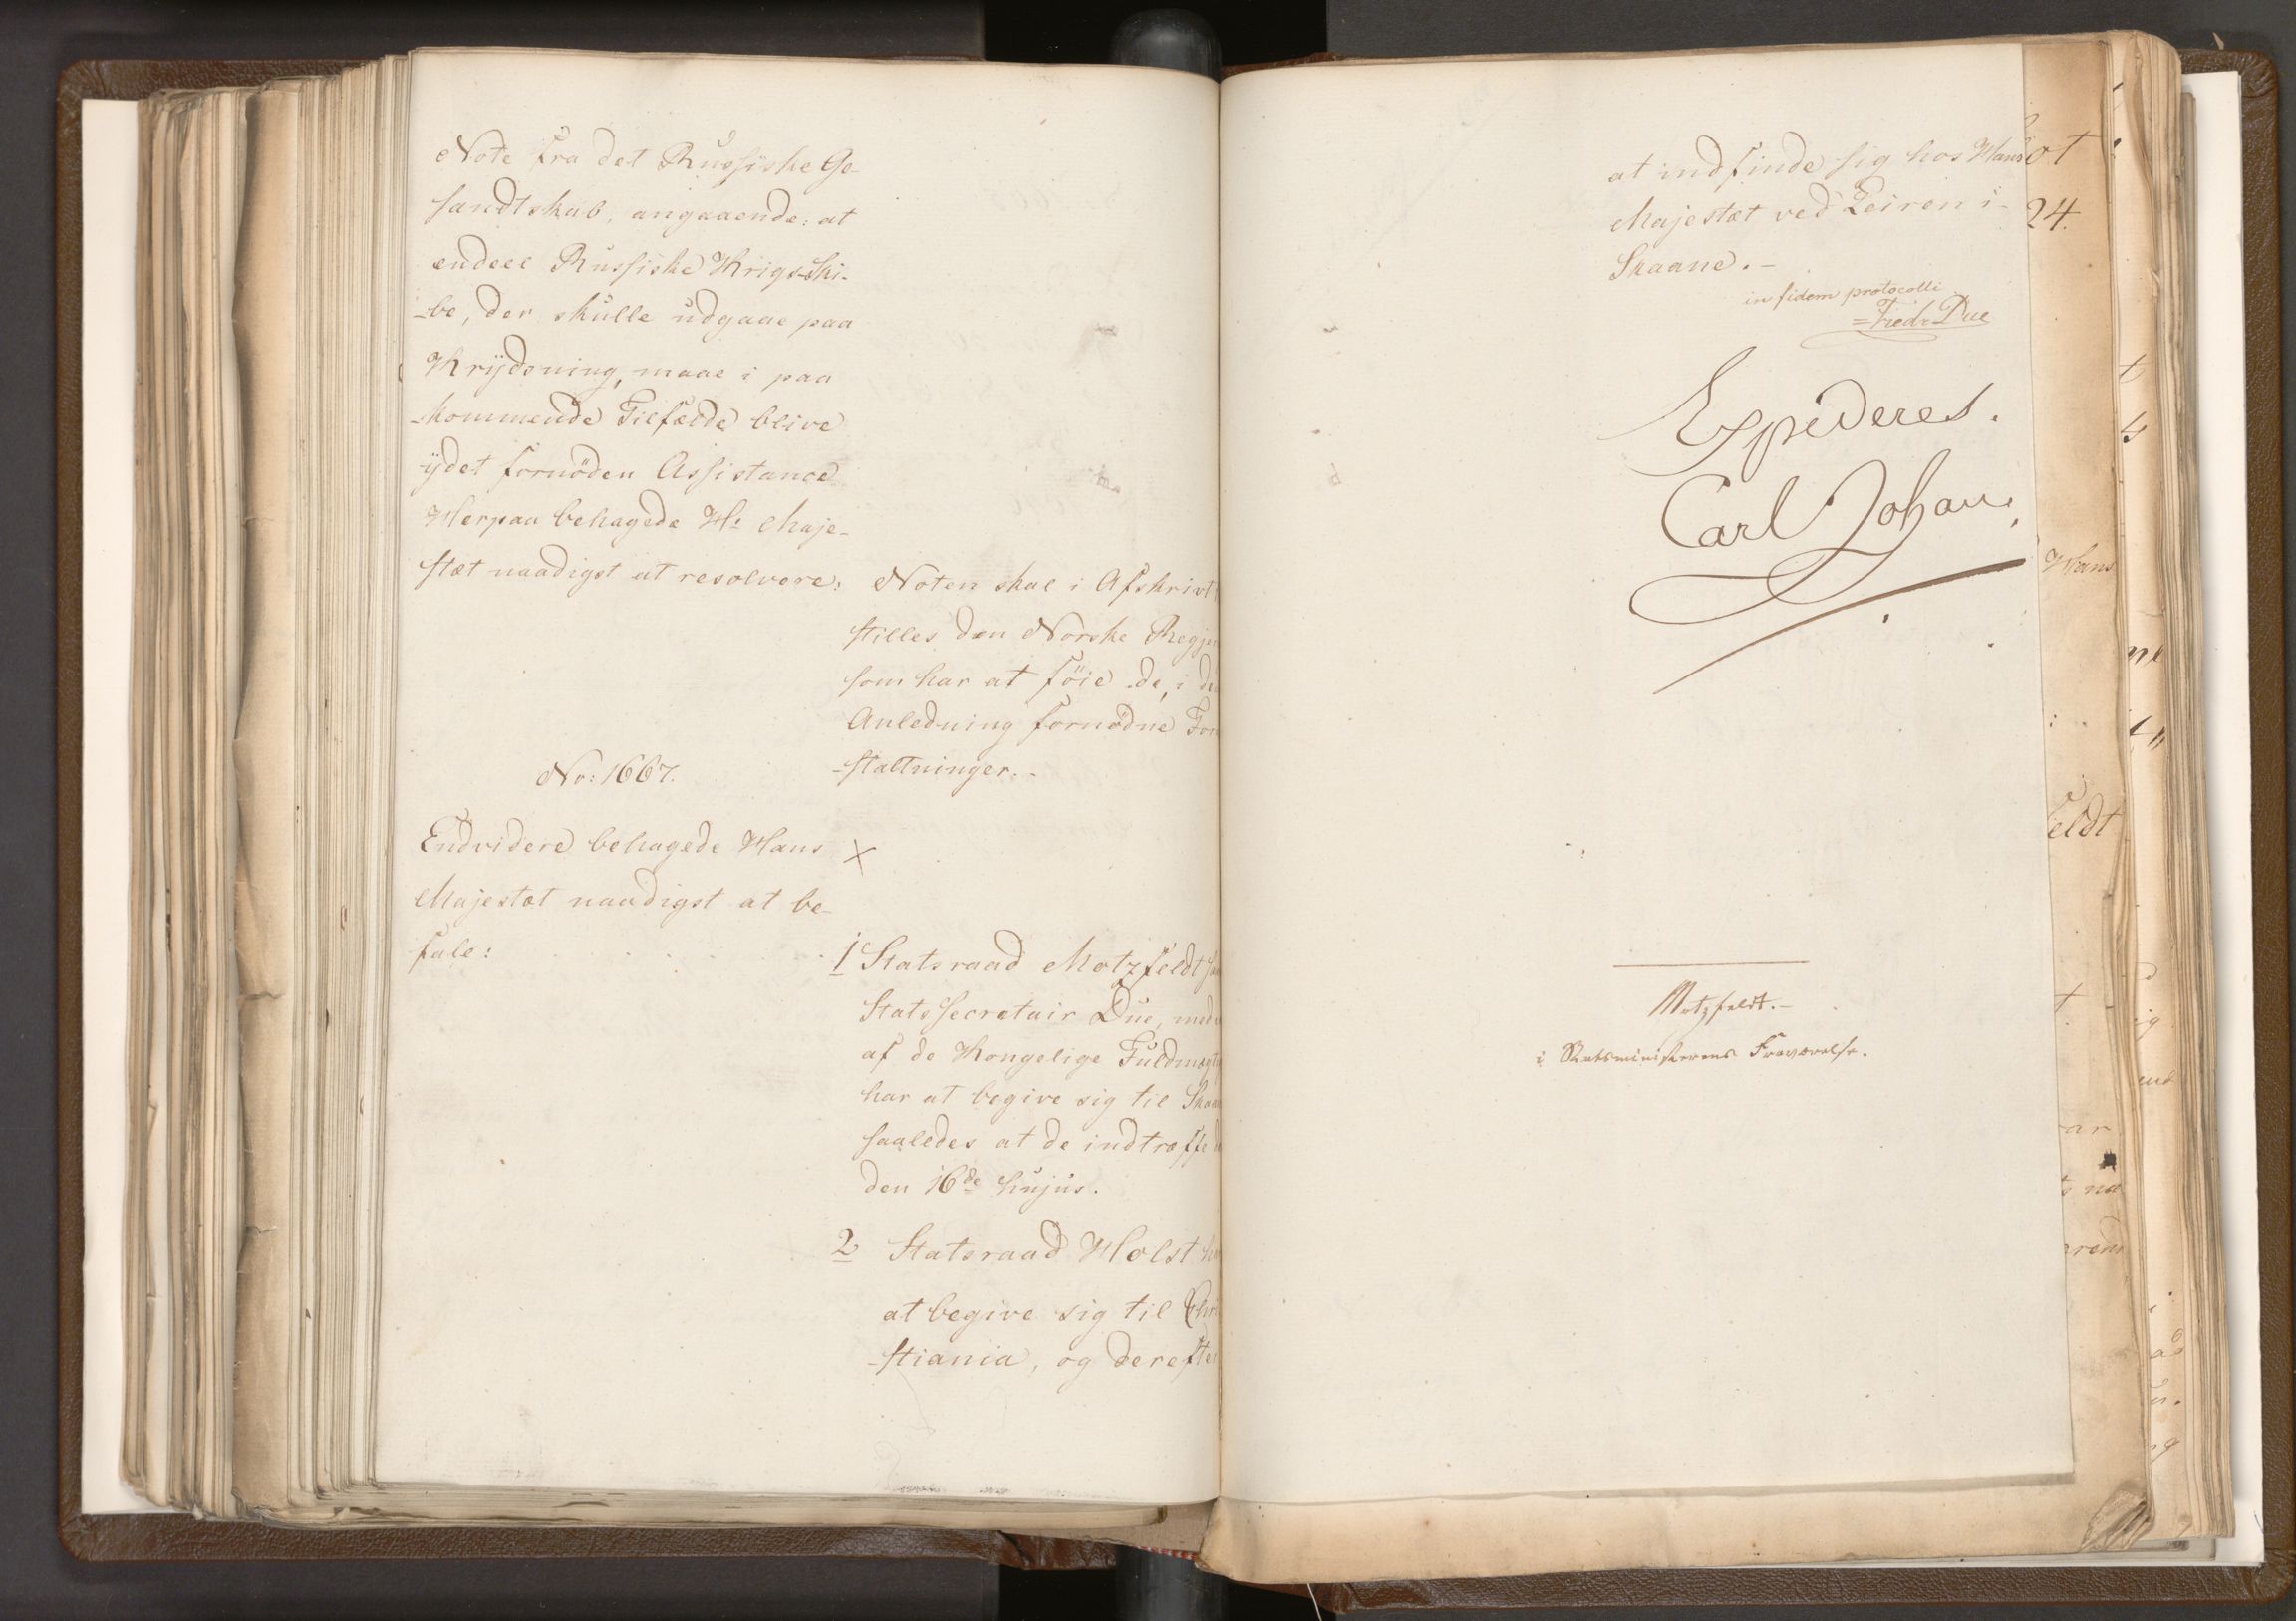 Note fra det Russiske Ge-
sandtskab, angaaende: at
endeel Russiske Krigs-Ski-
-be, der skulle udgaae paa
Krijdsning, maae i paa
-kommende Tilfælde blive
ijdet fornöden Assistance
Herpaa behagede Hs Maje-
stæt naadigst at resolvere:
Noten skal i Afskrivt
stilles den Norske Regje
som har at föie de, i de
Anledning fornødne For
-staltninger. -
No: 1667.
Endvidere behagede Hans
Majestæt naadigst at be-
fale:
X
1 Statsraad Motzfeldt
Statssecretair Due, med
af de Kongelige Fuldmægti
har at begive sig til Skaa
saaledes at de indtræffe
den 16de hujus.
2 Statsraad Holst
at begive sig til Chri
-stiania, og derefter
at indfinde sig hos Hans
Majestæt ved Leiren i
Skaane. -
in fidem protocolli
Fredr Due
Expederes.
Carl Johan.
Motzfeldt. -
i Statsministerens Fraværelse.
ot
24.
Hans
feldt